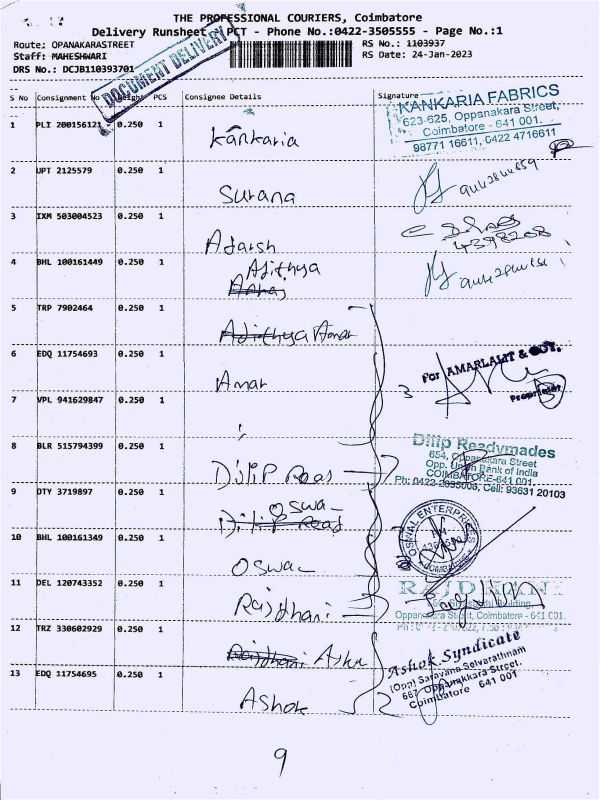 THE PROFESSIONAL COURIERS, Coimbatore
Delivery Runsheet - PCT - Phone No.:0422-3505555 - Page No.:1
Route: OPANAKARASTREET
RS No.: 1103937
Staff: MAHESHWARI
RS Date: 24-Jan-2023
DRS No.: DCJB110393701
DOCUMENT DELIVERY
S No Consignment No Weight PCS Consignee Details Signature
KANKARIA FABRICS
623-625, Oppanakara Street,
Coimbatore - 641 001.
98771 16611, 0422 4716611
1 PLI 200156121 0.250 1 Kankaria
2 UPT 2125579 0.250 1 Surana
3 IXM 503004523 0.250 1 Adarsh
4398208
4 BHL 100161449 0.250 1 Adithya
5 TRP 7902464 0.250 1 Adithya Amar
6 EDQ 11754693 0.250 1 Amar
For AMARLALIT & COY.
Proprietor
3
7 VPL 941629847 0.250 1
8 BLR 515794399 0.250 1 Dilip Roas
Dilip Readymades
654, Oppanakara Street
Opp. Union Bank of India
COIMBATORE-641 001.
Ph: 0422-2395008, Cell: 93631 20103
9 OTY 3719897 0.250 1 Oswa
Dilip Road
OSWAL ENTERPRISES
COIMBATORE
10 BHL 100161349 0.250 1 Oswa
11 DEL 120743352 0.250 1 Rajdhani
RAJDHANI
Building,
Oppanakara Street, Coimbatore - 641 001.
12 TRZ 330602929 0.250 1 Rajdhani Asho
Ashok Syndicate
(Opp) Saravana Selvarathnam
687 Oppanakkara Street.
Coimbatore 641 001
13 EDQ 11754695 0.250 1 Ashok
9